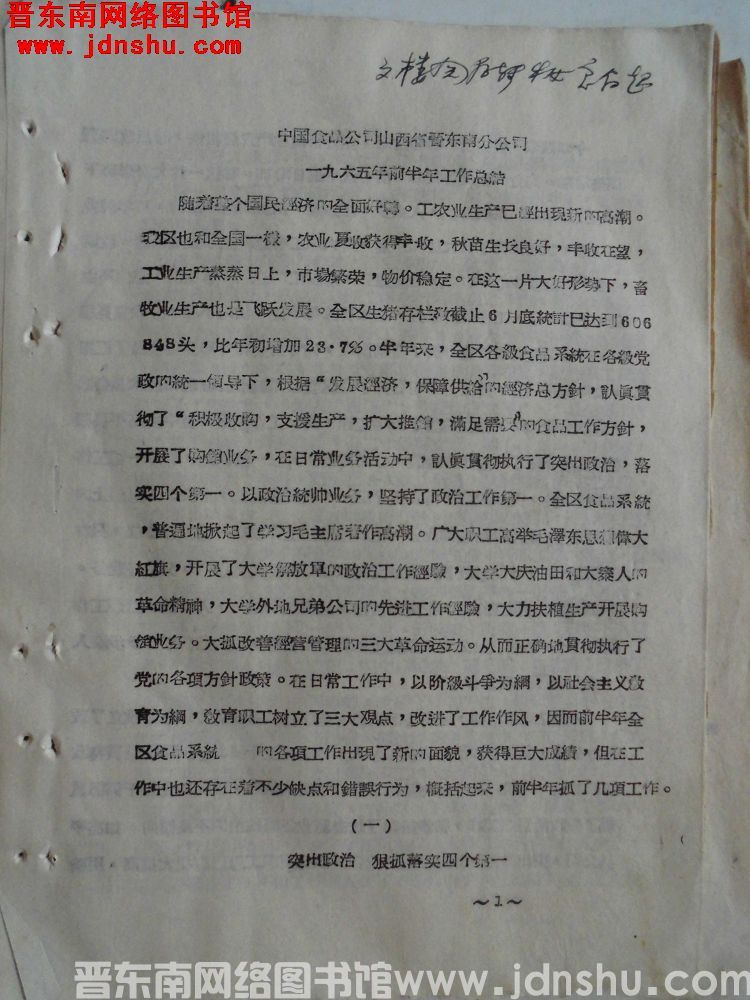 晋东南网络图书馆
www.jdnshu.com
中国食品公司山西省晋东南分公司
一九六五年前半年工作总結
随着整个国民經济的全面好轉。工农业生产已經出現新的高潮。
我区也和全国一樣，农业夏收获得丰收，秋苗生长良好，丰收在望，
工业生产蒸蒸日上，市場繁荣，物价稳定。在这一片大好形势下，畜
牧业生产也是飞跃发展。全区生猪存栏数截止6月底統計已达到606
848头，比年初增加23·7%。半年来，全区各級食品系統在各級党
政的統一領导下，根据“发展經济，保障供給”的經济总方針，訊眞貫
彻了“积极收购，支援生产，扩大推銷，滿足需要”的食品工作方針，
开展了购銷业务，在日常业务活动中，訊眞貫彻执行了突出政治，落
实四个第一。以政治統帅业务，坚持了政治工作第一。全区食品系統
，普遍地掀起了学习毛主席著作高潮。广大职工高举毛澤东思想偉大
紅旗，开展了大学解放軍的政治工作經驗，大学大庆油田和大寨人的
革命精神，大学外地兄弟公司的先进工作經驗，大力扶植生产开展购
銷业务。大抓改善經营管理的三大革命运动。从而正确地貫彻执行了
党的各項方針政策。在日常工作中，以阶級斗爭为綱，以社会主义教
育为綱，教育职工树立了三大覌点，改进了工作作风，因而前半年全
区食品系統 的各項工作出現了新的面貌，获得巨大成績，但在工
作中也还存在着不少缺点和錯誤行为，概括起来，前半年抓了几項工作。
（一）
突出政治 狠抓落实四个第一
～1～
晋东南网络图书馆www.jdnshu.com